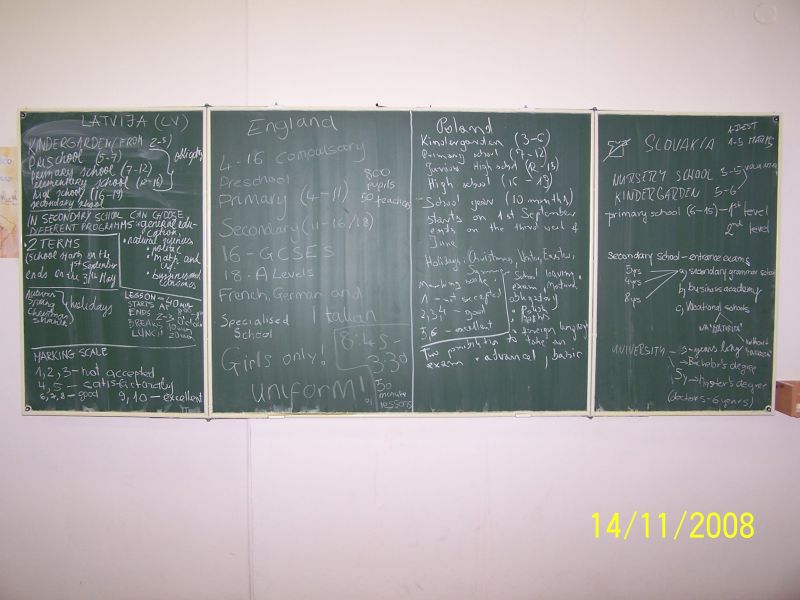 LATVIJA (LV)
KINDERGARDEN (FROM 2-5)
PRESCHOOL (5-7)
primary school (7-12)
elementary school (12-16)
high school (16-19)
secondary school
obligatory
IN SECONDARY SCHOOL CAN CHOOSE
DIFFERENT PROGRAMMS
• general edu-
cation,
• natural sciences
• math, and
• business and
economics
• 2 TERMS
(school starts on the
1st September
ends on the 31th May)
Autumn
Spring
Christmas
Summer
holidays
LESSON - 40 min
STARTS AT
ENDS
BREAKS 10 min
LUNCH 20 min
MARKING SCALE
1, 2, 3 - not accepted
4, 5 - satisfactorally
6, 7, 8 - good
9, 10 - excellent
England
4-16 compulsary
Preschool
Primary (4-11)
800
pupils
50 teachers
Secondary (11-16/18)
16 - GCSES
18 - A Levels
French, German and
Italian
Specialised
School
8:45-
3:30
Girls only.
uniform!
50
minute
lessons
Poland
Kindergarden (3-6)
Primary school (7-12)
Junior High school (12-15)
High school (16-19)
- School year (10 months)
starts on 1st September
ends on the third week of
June
Holidays, Christmas, Winter, Easter,
Summer
marking scale:
1 - not accepted
2,3,4 - good
5,6 - excellent
• School leaving
exam, matura
obligatory
• Polish
• Maths
• foreign language
Two possibilities to take an
exam • advanced, basic
SLOVAKIA
1-BEST
1-5 MARKS
NURSERY SCHOOL 3-5
KINDERGARDEN 5-6
primary school (6-15) - 1st level
2nd level
Secondary school - entrance exams
5yrs
4yrs
8yrs
a) secondary grammar school
b) bussines academy
c) Vocational schools
"MATURITA"
without
"MATURITA"
UNIVERSITY - 3 years long
Bachelor's degree
5y Master's degree
(doctors - 6 years)
14/11/2008